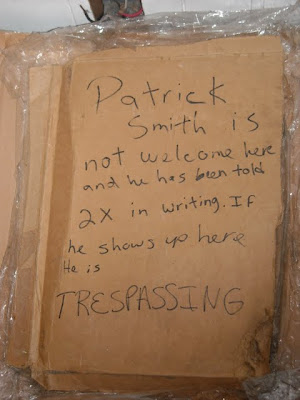 Patrick
Smith is
not welcome here
and he has been told
2X in writing. If
he shows up here
He is
TRESPASSING